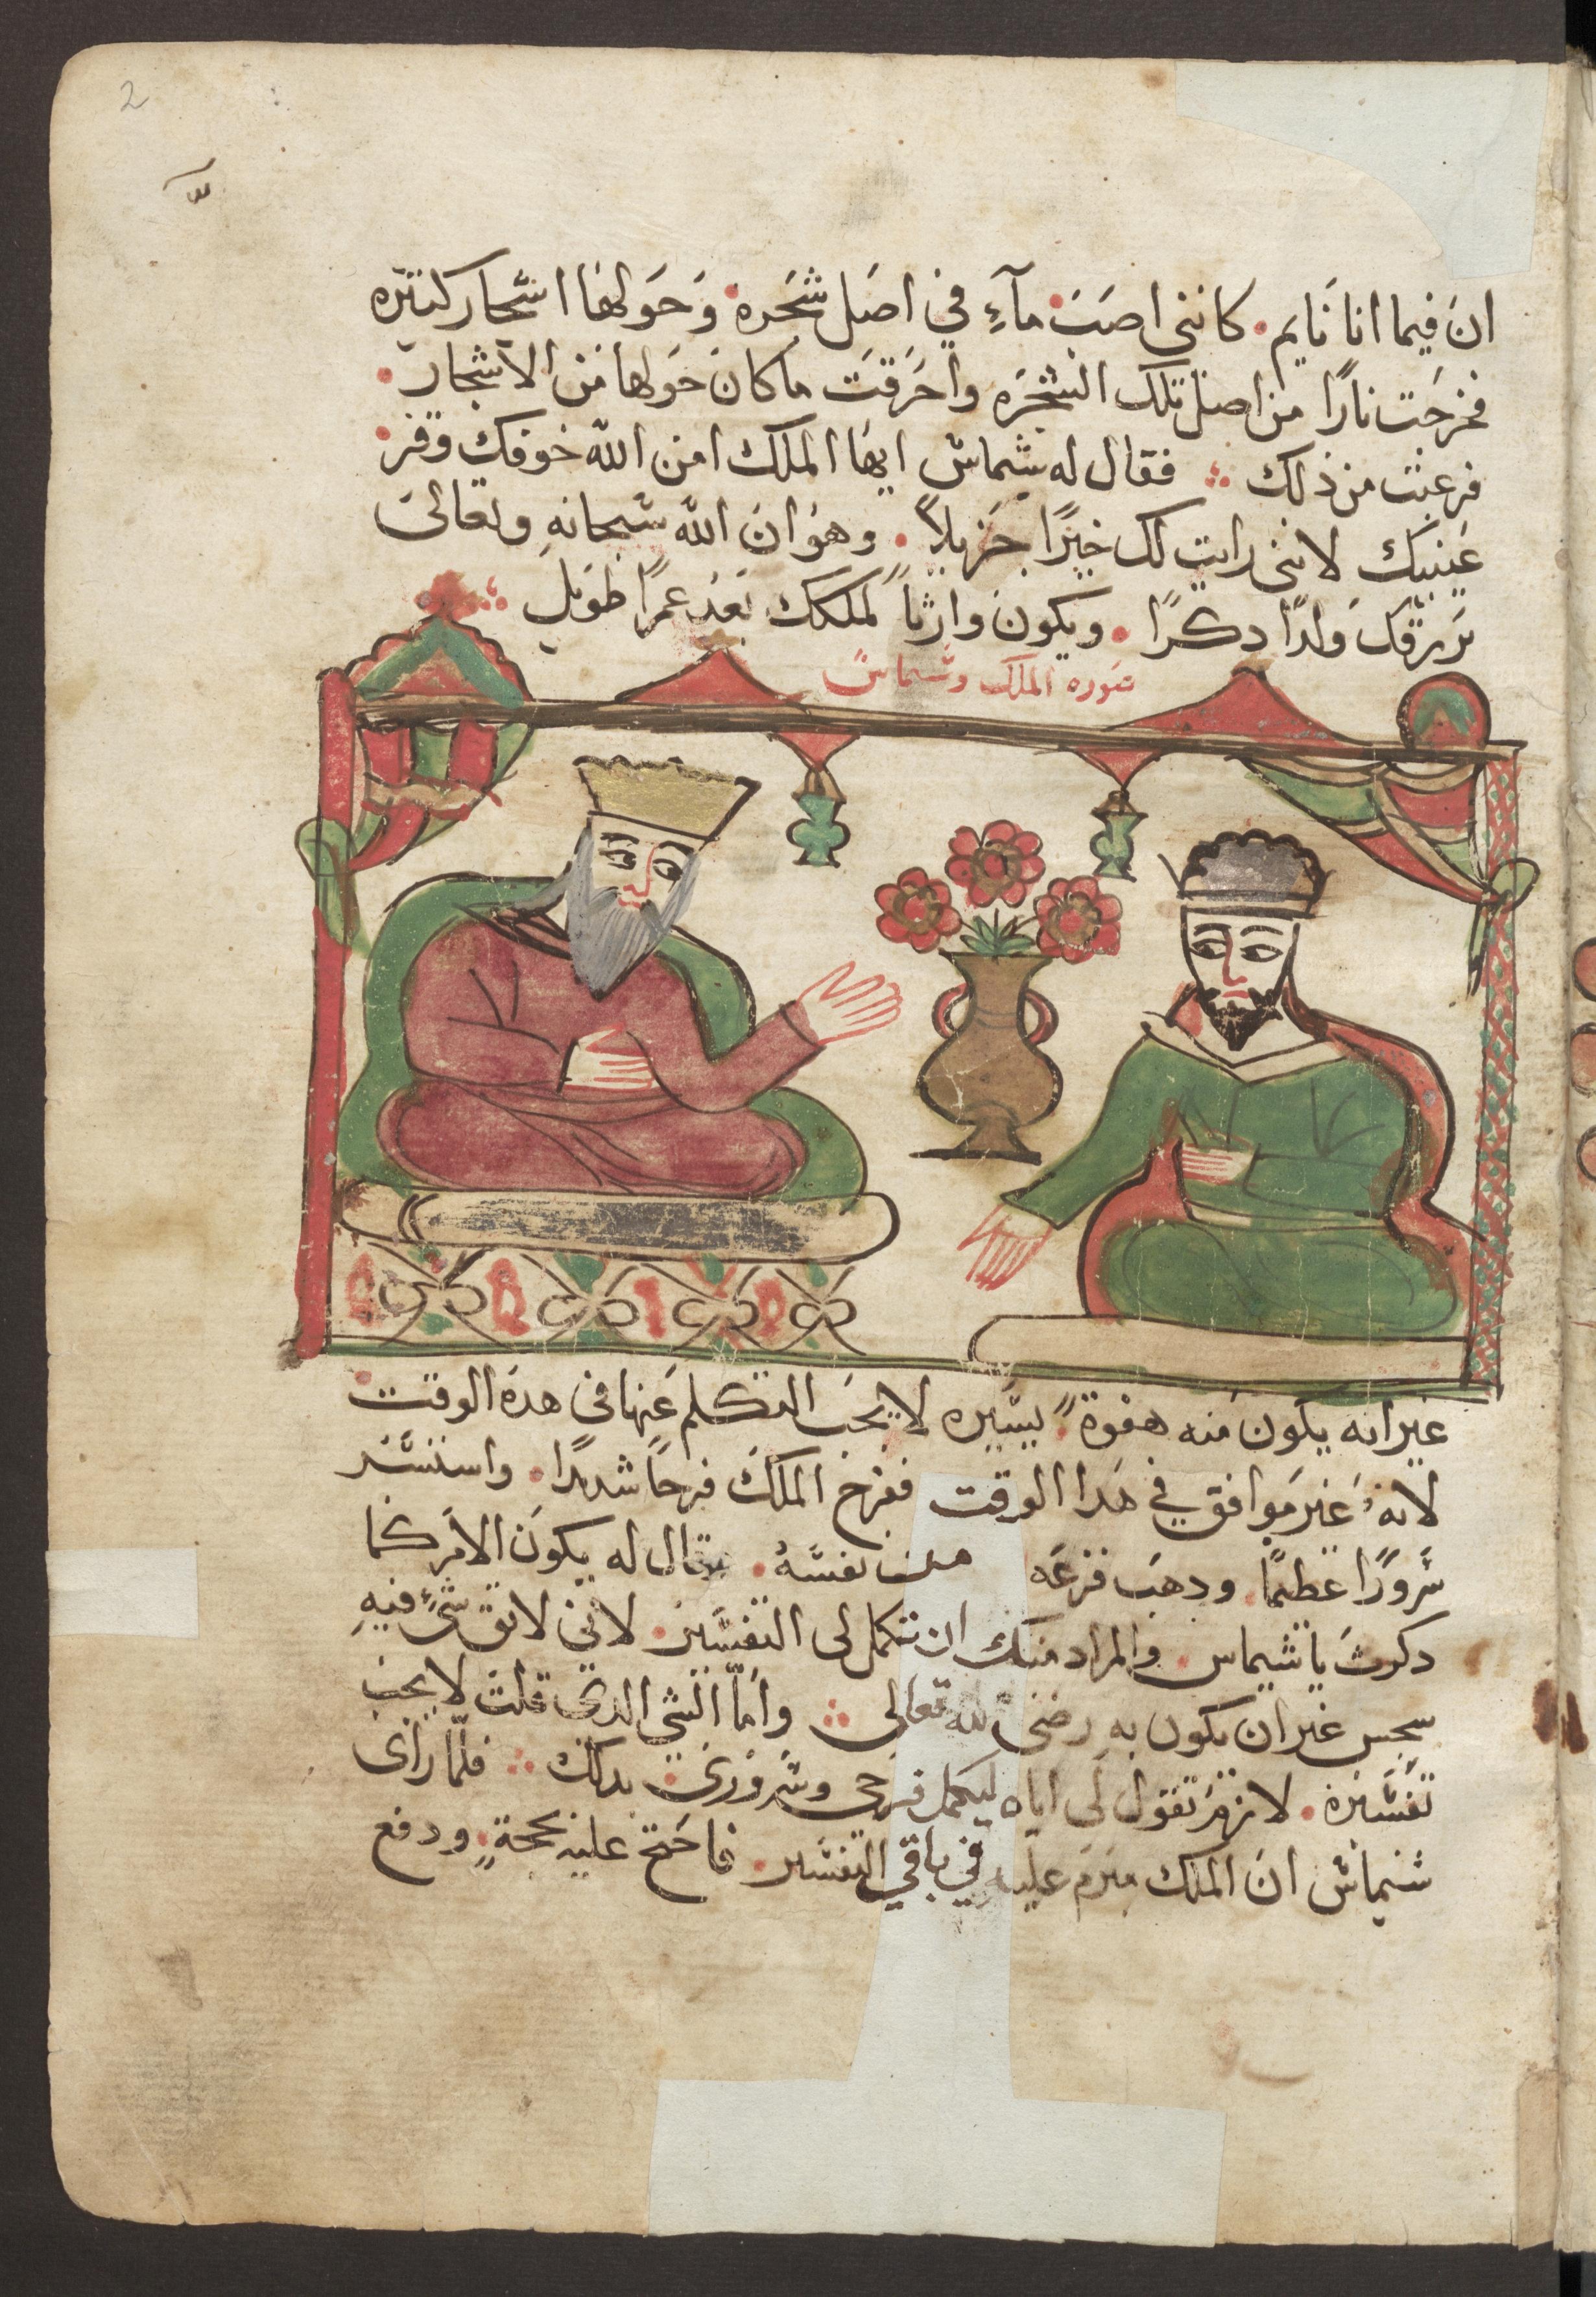 2
ان فيما انا نايم. كانني اصب ماء في اصل شجره وحولها اشجار كثيره
فخرجت نارا من اصل تلك الشجره واحرقت ما كان حولها من الاشجار.
فرعبت من ذلك ∴ فقال له شيماس ايها الملك امن الله خوفك وقر
عينيك لانني رايت لك خيرا جزيلا. وهو ان الله سبحانه وتعالى
يرزقك ولدا دكرا. ويكون وارثا لملكك بعد عمرا طويل ∴
صوره الملك وشماس
غير انه يكون منه هفوة يسيره لا يجب التكلم عنها في هده الوقت
لانه غير موافق في هدا الوقت ففرح الملك فرحا شديدا. واستبشر
سرورا عظيما. ودهب فزعه من نفسه. وقال له يكون الامر كما
دكرت يا شيماس. والمراد منك ان تكمل لى التفسير. لانني لا شي فيه
غير ان يكون به رضى الله تعالى ∴ واما الشي الدي قلت لا يجب
تفسيره. تقول لي اياه ليكمل فرحي وسروري بدلك ∴ فلما راى
شيماس ان الملك عليه في باقي التفسير. فاحتج عليه بحجة. ودفع